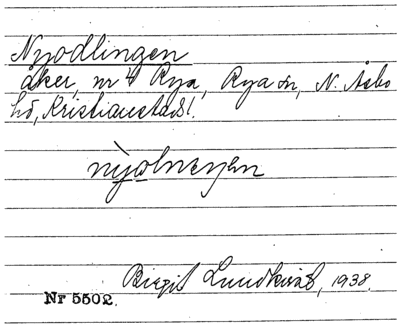 Nyodlingen
åker, nr 4 Rya, Rya sn, N. Åsbo
hd, Kristianstads l.
Birgit Lundkvist, 1938.
Nr 5502.